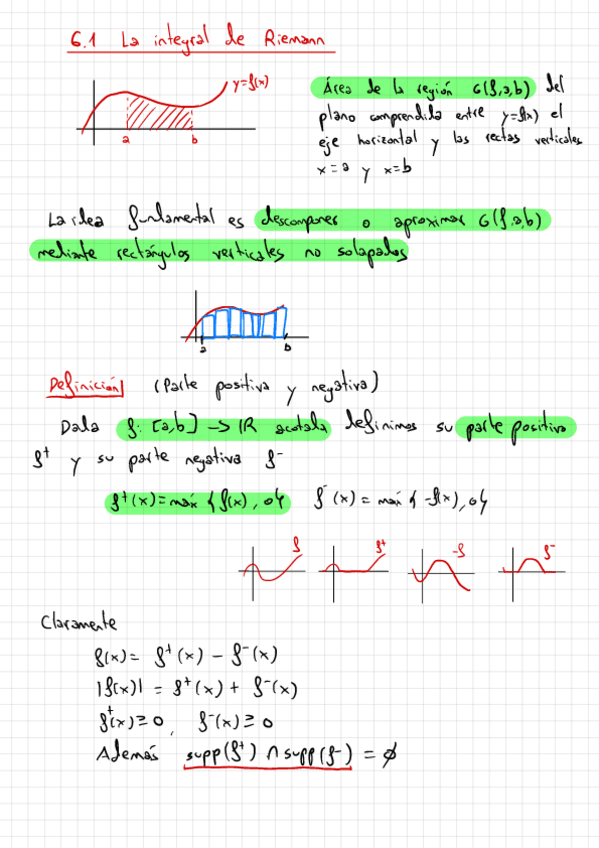 6.1 La integral de Riemann
y=f(x)
a b
Área de la región G(f,a,b) del
plano comprendida entre y=f(x) el
eje horizontal y las rectas verticales
x=a y x=b
La idea fundamental es descomponer o aproximar G(f,a,b)
mediante rectángulos verticales no solapados
a b
Definición (Parte positiva y negativa)
Dada f: [a,b] -> ℝ acotada definimos su parte positiva
f⁺ y su parte negativa f⁻
f⁺(x)=máx {f(x), 0} f⁻(x)=máx {-f(x), 0}
f f⁺ -f f⁻
Claramente
f(x)= f⁺(x) - f⁻(x)
|f(x)| = f⁺(x) + f⁻(x)
f⁺(x)≥0, f⁻(x)≥0
Además supp(f⁺) ∩ supp(f⁻) = ∅